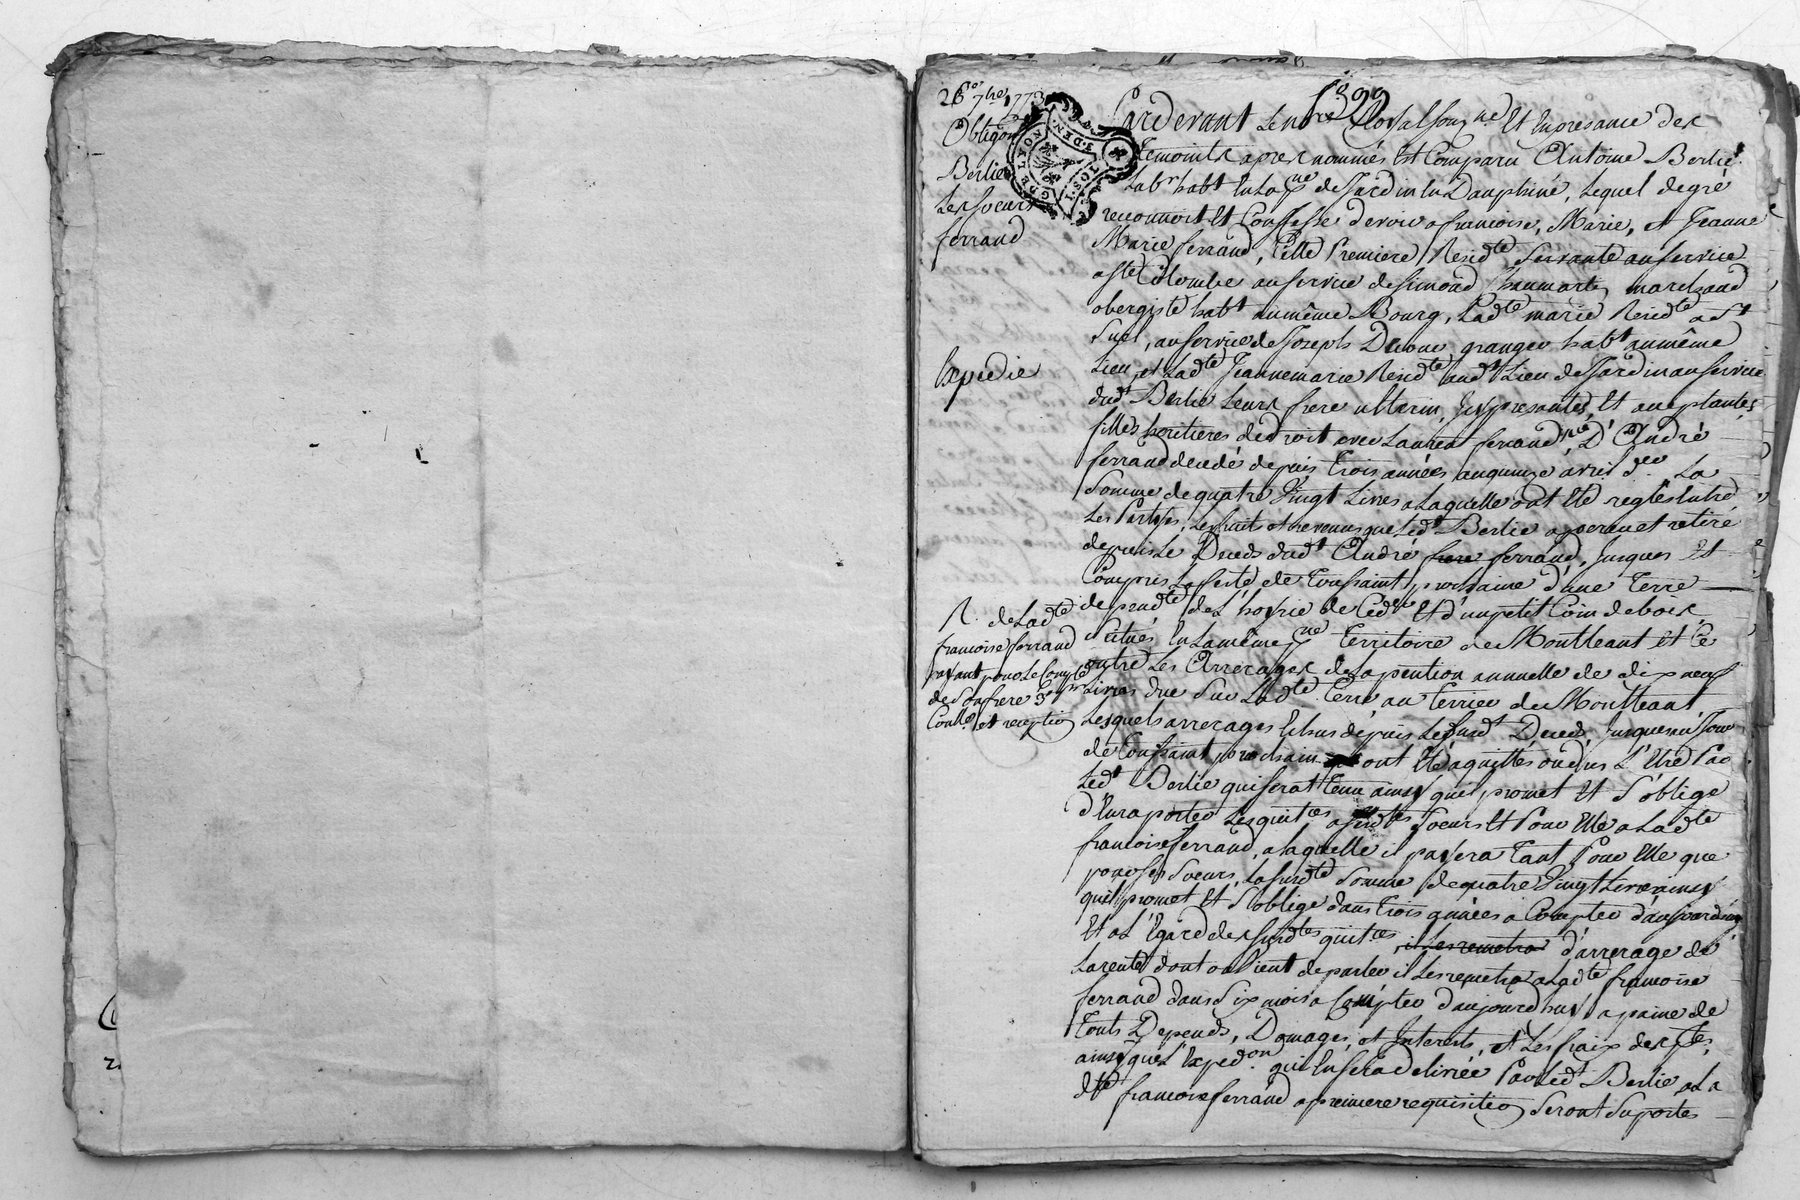 26e 7bre 1773
Obligon
Berlié
Les soeurs
ferrand
Expediée
R. de Ladte
francoise ferrand
payant pour Le Compte
de Son frere 3#
Conlle et reception
1399
GDE LYON
2. DEN
Pardevant Le nre Royal Souzné Et En presance des
Temoints apres nommés Est Comparu Antoine Berlié
Labr habt En La psse de Jardin En Dauphiné, Lequel de gré
reconnoit Et Confesse devoir a francoise, Marie, et Jeanne
Marie ferrand, Celle Premiere Residte Servante au Service
a Ste Colombe au Service de Simond Chaumartin marchand
obergiste habt au même Bourg, Ladte marie Residte a St
Suel, au Service de Joseph Ducour granger habt au même
Lieu, et Ladte Jeanne marie Residte audt Lieu de Jardin au Service
dudt Berlié Leurs frere utterin, Icy presantes, Et aceptantes
filles heritieres de droit avec Laurent ferrand, D'André
ferrand decedé depuis trois années, au quinze avril der La
Somme de quatre Vingt Livres a Laquelle ont Eté reglés Entre
Les Parties, Les fruits et revenus que Ledt Berlié a perçu et retiré
depuis Le Deceds dudt André frere ferrand, Jusques Et
Compris La feste de Toussaint prochaine d'une Terre
dependte de L'hoyrie de Ced. Et d'un petit Coin de bois
Situés En La même psse Territoire de Montleant et Ce
outre Les Arrerages de La pention annuelle de dix neuf
Livres due Sur Ladte Terre au Terrier de Montleant
Lesquels arrerages Echus depuis Le Susdt Deceds Jusques au Jour
de Toussaint prochain ont Eté aquittés ou dus L'Etre Par
Ledt Berlié qui Sera Tenu ainsy quil promet Et S'oblige
d'En raporter Les quitces a Sesdtes Soeurs Et Pour Elle a Ladte
francoise ferrand, a laquelle il payera Tant Pour Elle que
pour Ses Soeurs, La Susdte Somme de quatre Vingt Livres ainsy
quil promet Et S'oblige dans trois années a Compter d'aujourdhuy
Et a L'Egard des Susdtes quitces il Les remettra d'arrerage de
La rente dont on Vient de parler il Les remettra a Ladte francoise
ferrand dans Six mois a Compter d'aujourdhuy a paine de
Touts Depends, Domages, et Interests, et Les fraix des ptes
ainsy que L'Expedon qui En Sera delivrée Par Ledt Berlié a La
dte francoise ferrand a premiere requisition Seront Suportés